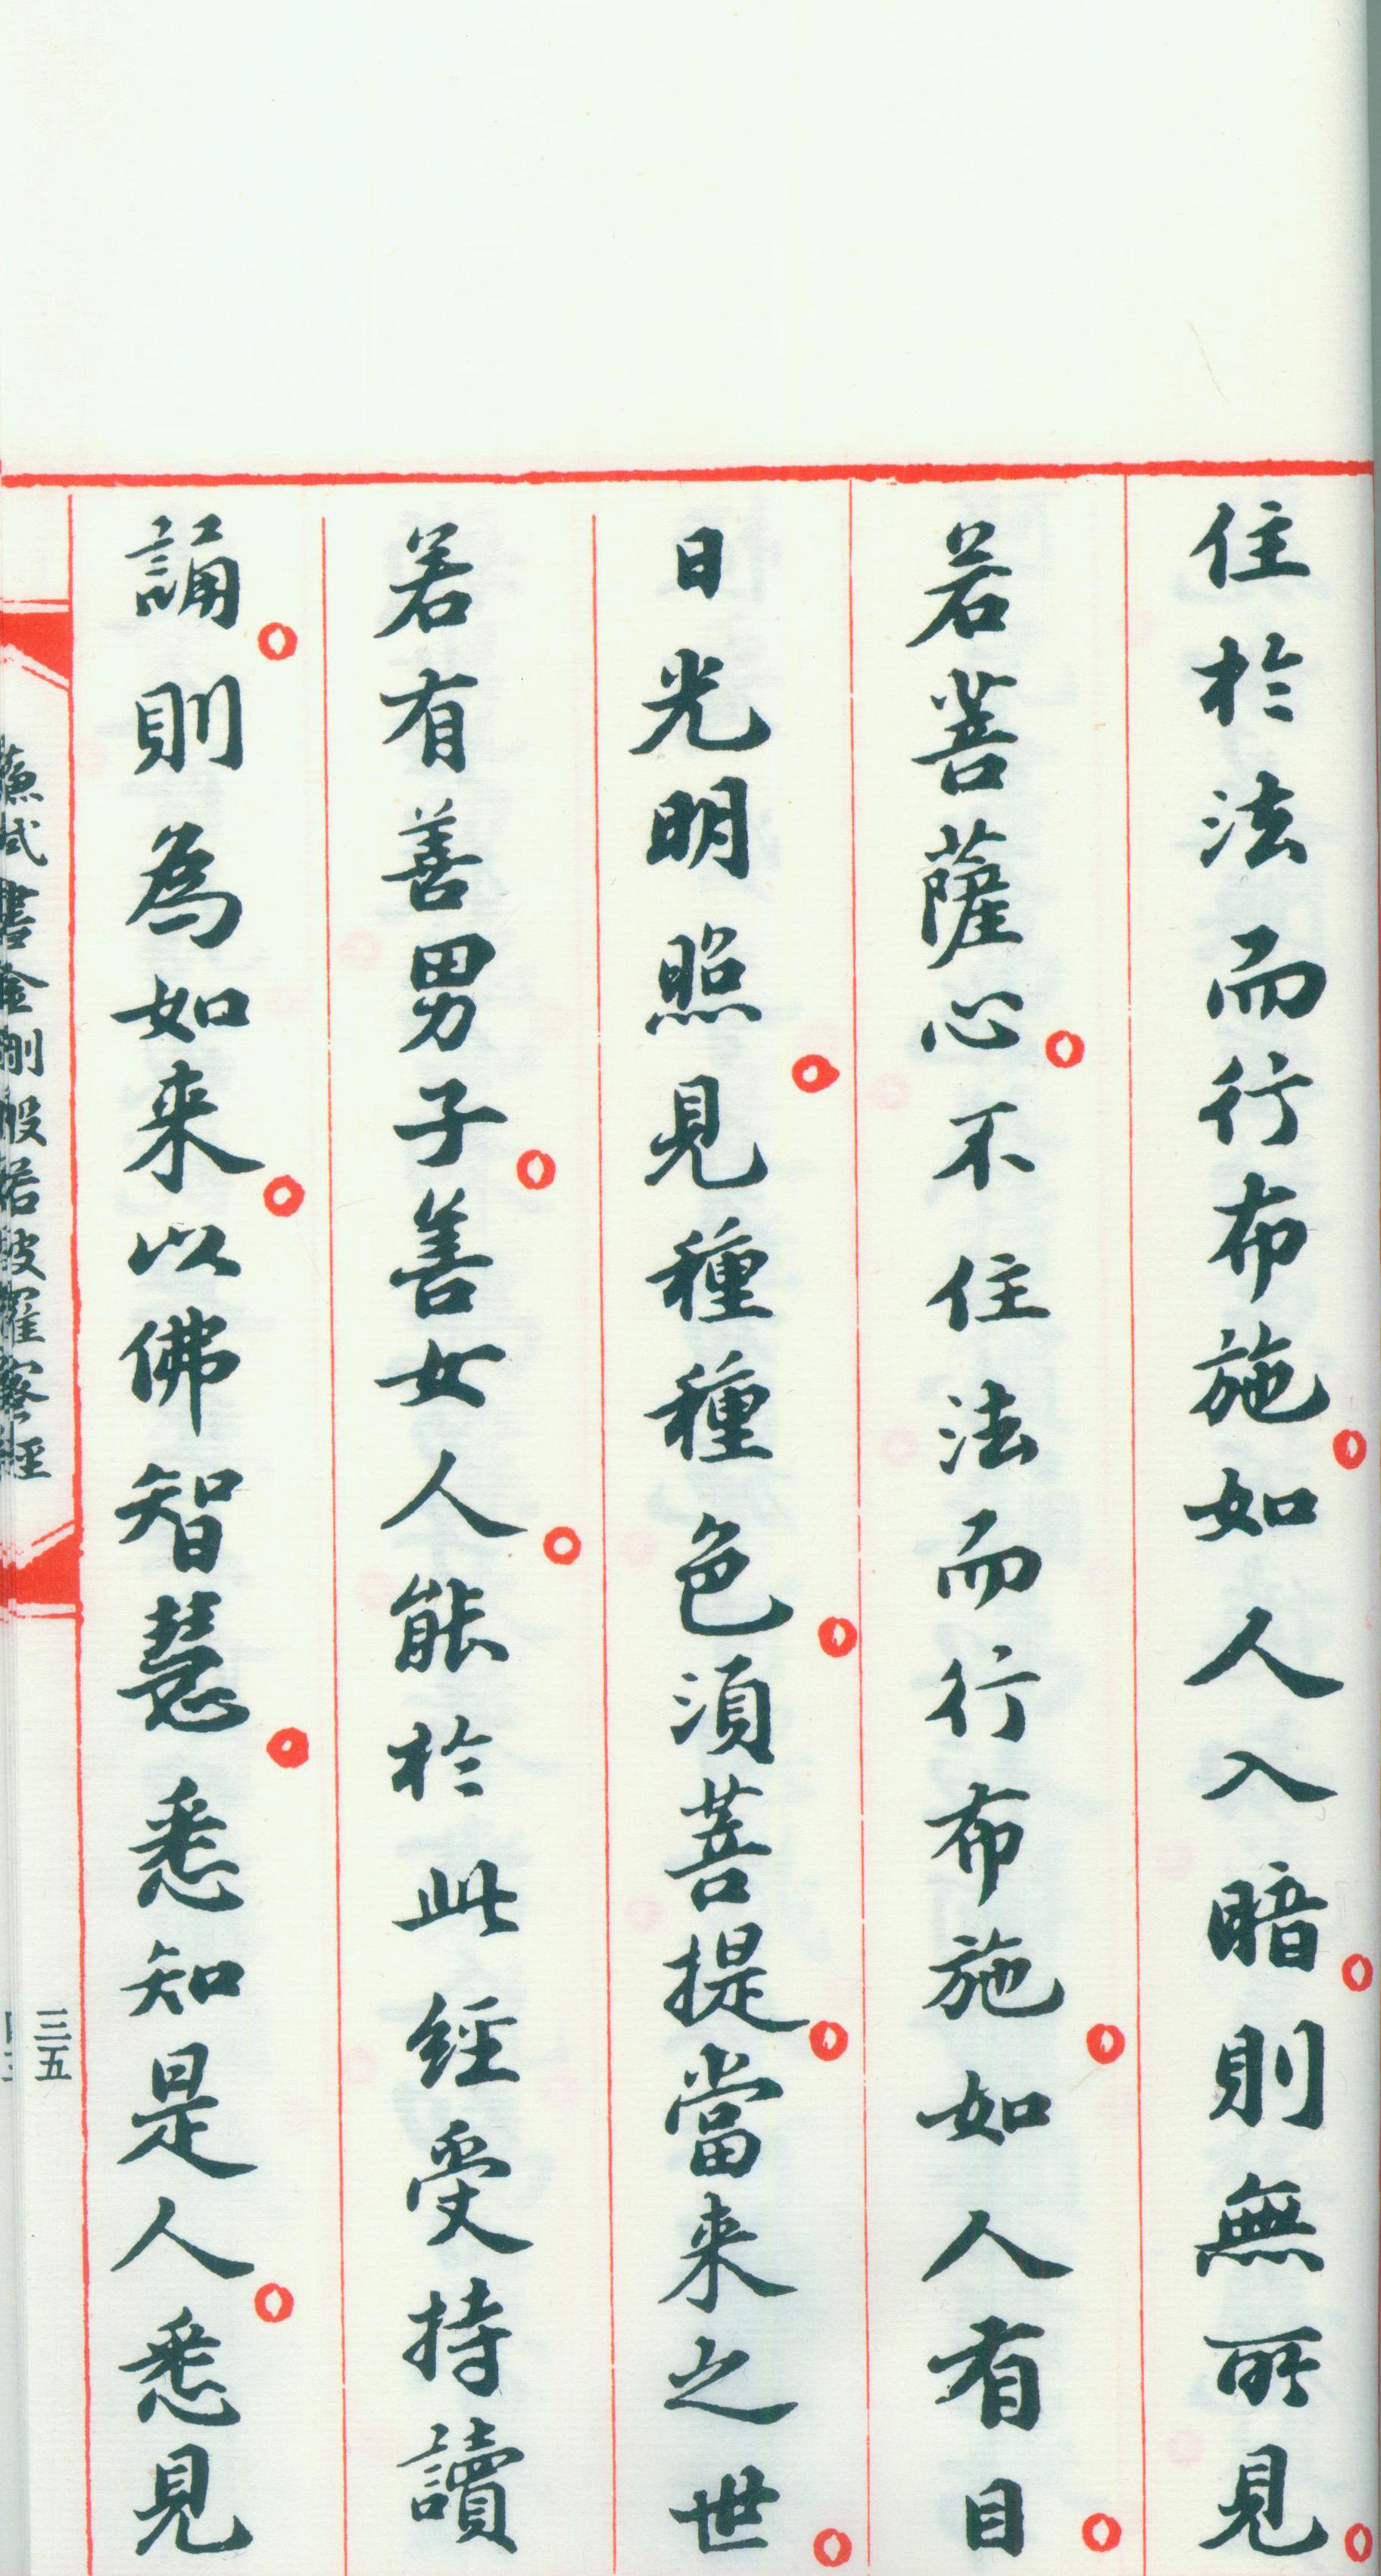 住於法而行布施。如人入暗。則無所見。
若菩薩心。不住法而行布施。如人有目。
日光明照。見種種色。須菩提。當来之世。
若有善男子。善女人。能於此經受持讀
誦。則為如来。以佛智慧。悉知是人。悉見
蘇軾書金剛般若波羅蜜經
三五